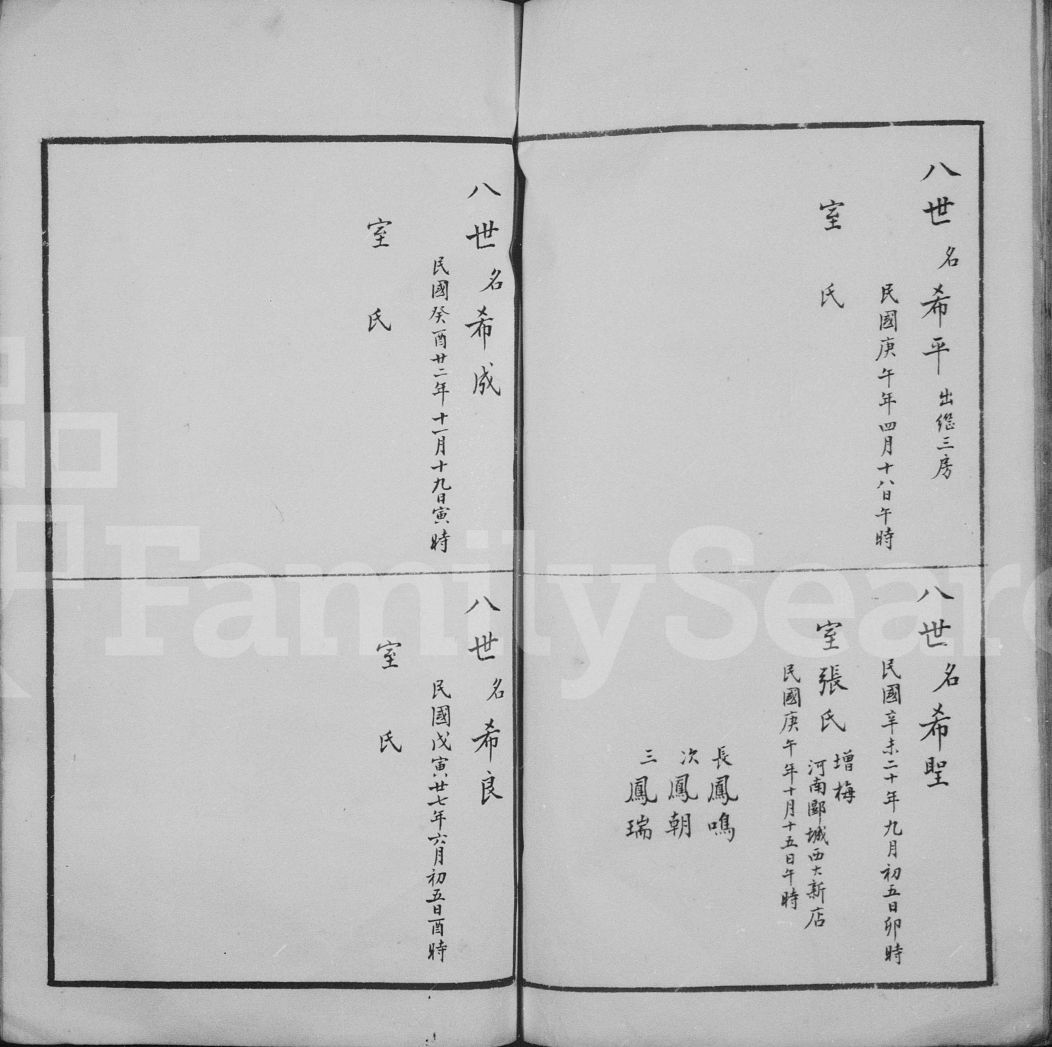 八世 名 希平 出継三房
民國庚午年四月十八日午時
室 氏
八世 名 希聖
民國辛未二十年九月初五日卯時
室張氏 增梅
河南郾城西大新店
民國庚午年十月十五日午時
長鳳鳴
次鳳朝
三鳳瑞
八世 名 希成
民國癸酉廿二年十一月十九日寅時
室 氏
八世 名 希良
民國戊寅廿七年六月初五日酉時
室 氏
FamilySearc